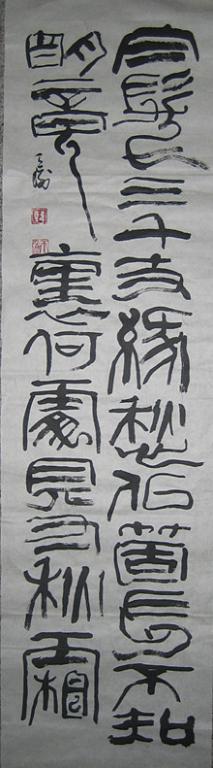 白髮三千丈緣愁似箇長不知
明鏡裏何處得秋霜